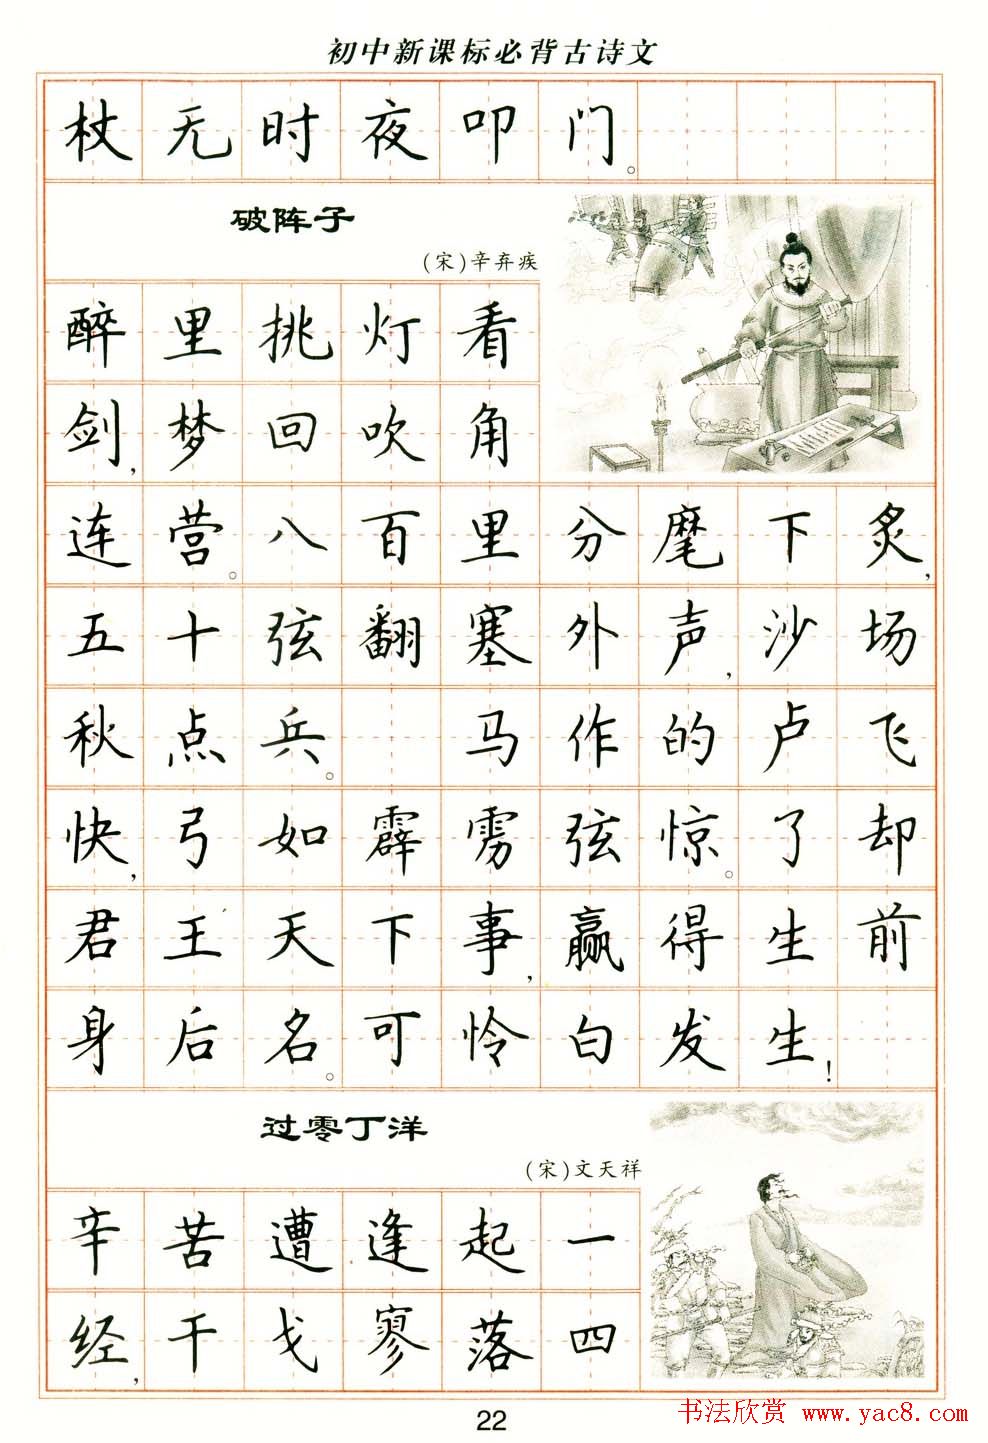 初中新课标必背古诗文
杖无时夜叩门。
破阵子
(宋)辛弃疾
醉里挑灯看
剑,梦回吹角
连营。八百里分麾下炙,
五十弦翻塞外声,沙场
秋点兵。 马作的卢飞
快,弓如霹雳弦惊。了却
君王天下事,赢得生前
身后名。可怜白发生!
过零丁洋
(宋)文天祥
辛苦遭逢起一
经,干戈寥落四
22
书法欣赏 www.yac8.com